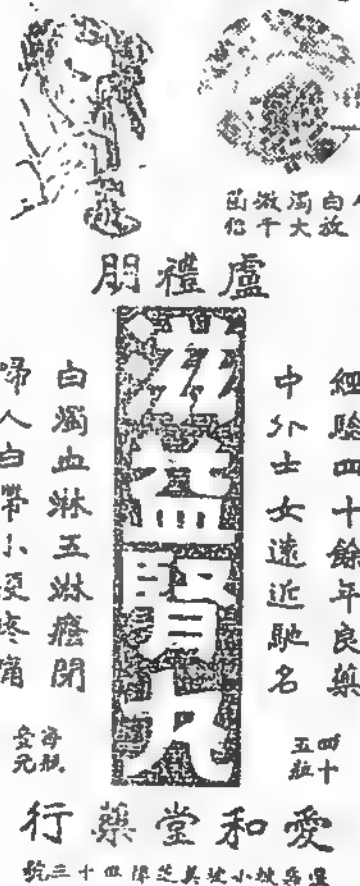 白濁微菌
放大千倍
盧禮朋
經驗四十餘年良藥
中外士女遠近馳名
益腎丸
白濁血淋五淋癃閉
婦人白帶小便疼痛
四十五粒
每瓶壹元
愛和堂藥行
坡小坡美芝律四十三號